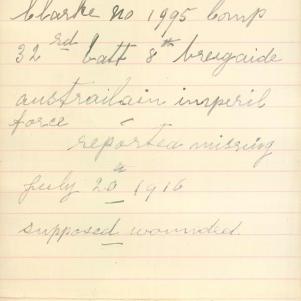 Clarke no 1995 Comp
32rd batt 8th breigaide
austrailain imperil
force
reported missing
july 20th 1916
supposed wounded.